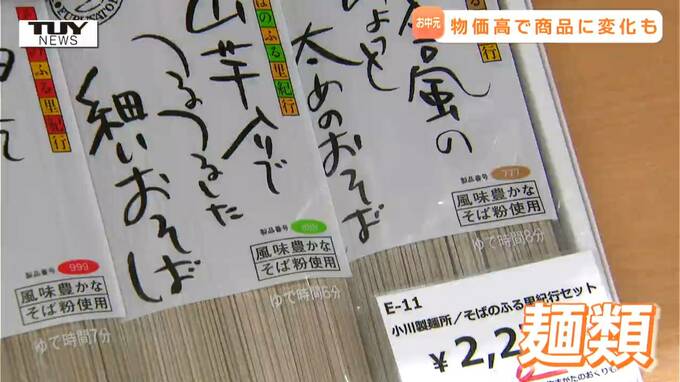 TUY
NEWS
お中元
物価高で商品に変化も
風の
ちょっと
太めのおそば
製品番号 777
風味豊かな
そば粉使用
ゆで時間8分
ばのふる里紀行
山芋入りで
つるつるした
細いおそば
製品番号 888
風味豊かな
そば粉使用
ゆで時間6分
のふる里紀行
製品番号 999
風味豊かな
そば粉使用
ゆで時間7分
E-11
小川製麺所/そばのふる里紀行セット
¥2,2
麺類